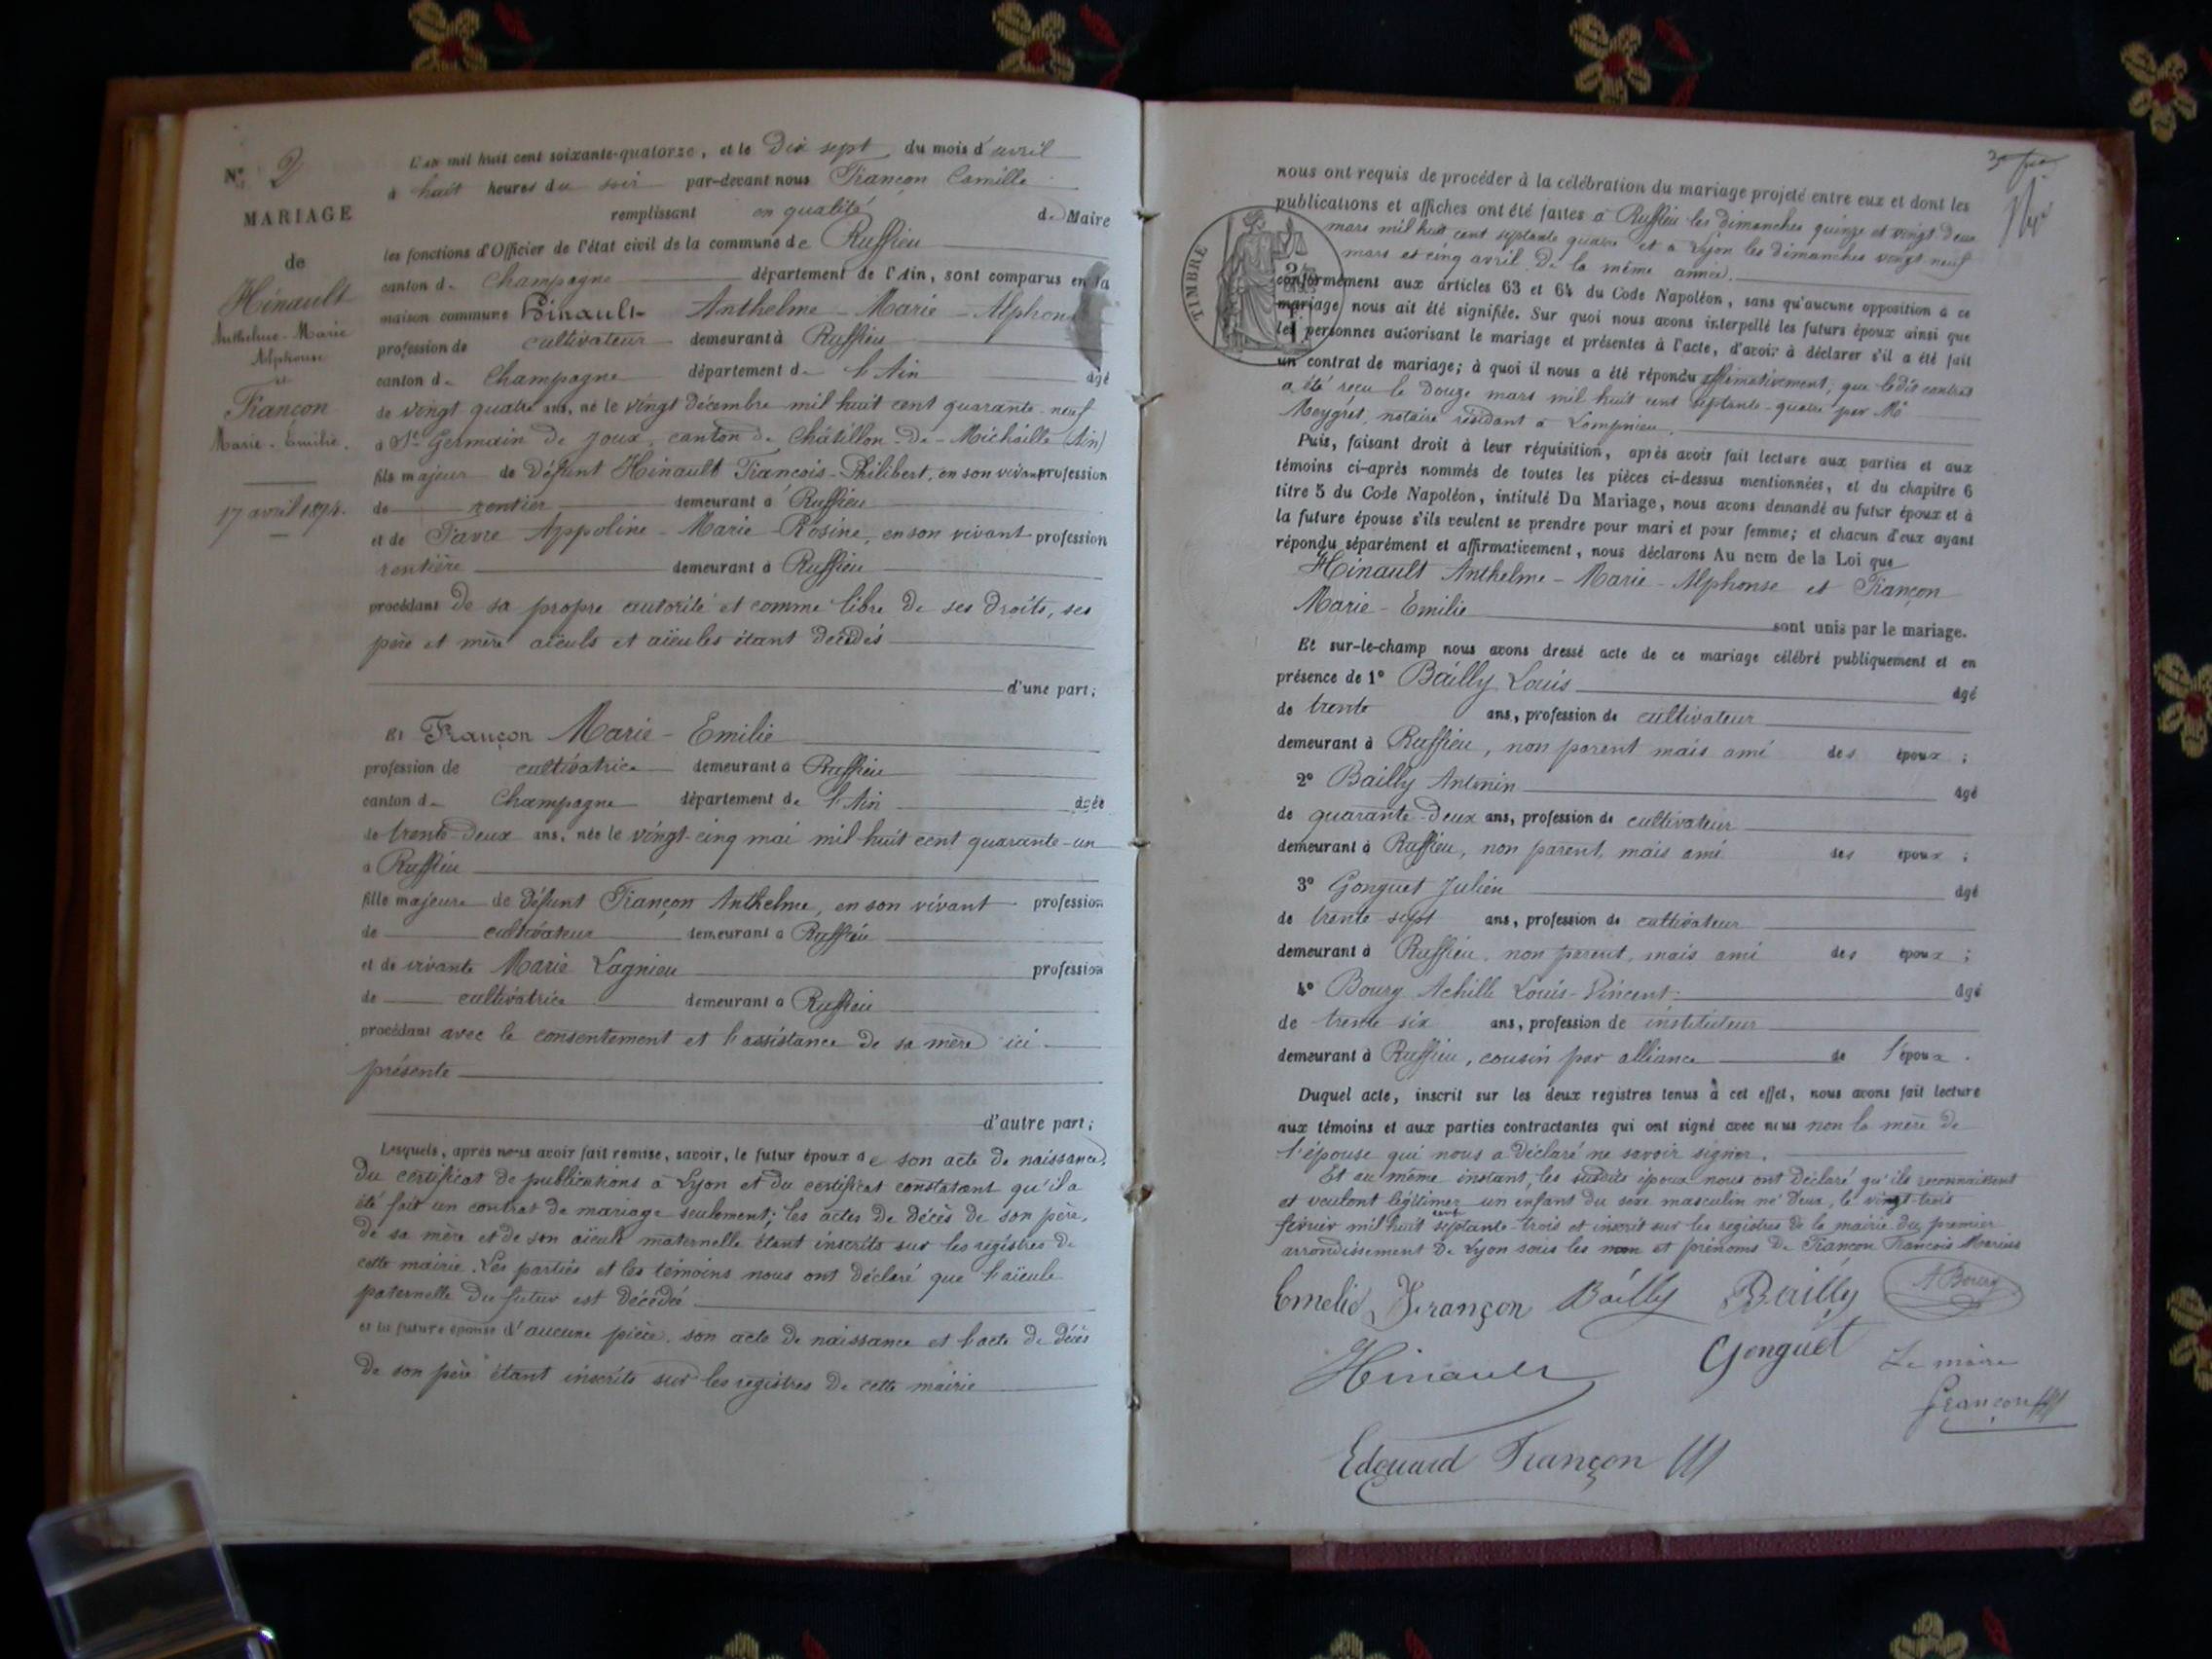 N° 2
MARIAGE
de
Hinault
Anthelme-Marie
Alphonse
et
Françon
Marie-Emilie.
17 avril 1874.
L'AN mil huit cent soixante-quatorze, et le Dix sept du mois d'avril
à huit heures du soir par-devant nous Françon Camille
remplissant en qualité de Maire
les fonctions d'Officier de l'état civil de la commune de Ruffieu
canton de Champagne département de l'Ain, sont comparus en la
maison commune Hinault Anthelme - Marie - Alphon
profession de cultivateur demeurant à Ruffieu
canton de Champagne département de l'Ain âgé
de vingt quatre ans, né le vingt Décembre mil huit cent quarante-neuf
à St Germain de Joux, canton de Châtillon-De-Michaille (Ain)
fils majeur de Défunt Hinault François-Philibert, en son vivant profession
de rentier demeurant à Ruffieu
et de Favre Appoline - Marie - Rosine, en son vivant profession
rentière demeurant à Ruffieu
procédant de sa propre autorité et comme libre de ses droits, ses
père et mère aïeuls et aïeules étant décédés
d'une part;
Et Françon Marie - Emilie
profession de cultivatrice demeurant à Ruffieu
canton de Champagne département de l'Ain âgée
de trente-deux ans, née le vingt-cinq mai mil huit cent quarante-un
à Ruffieu
fille majeure de défunt Françon Anthelme, en son vivant profession
de cultivateur demeurant à Ruffieu
et de vivante Marie Lagnieu profession
de cultivatrice demeurant à Ruffieu
procédant avec le consentement et l'assistance de sa mère ici
présente
d'autre part;
Lesquels, après nous avoir fait remise, savoir, le futur époux de son acte de naissance,
du certificat de publications à Lyon et du certificat constatant qu'il a
été fait un contrat de mariage seulement; les actes de décès de son père,
de sa mère et de son aïeule maternelle étant inscrits sur les registres de
cette mairie. Les parties et les témoins nous ont déclaré que l'aïeule
paternelle du futur est décédée
et la future épouse d'aucune pièce, son acte de naissance et l'acte de décès
de son père étant inscrits sur les registres de cette mairie
nous ont requis de procéder à la célébration du mariage projeté entre eux et dont les
publications et affiches ont été faites à Ruffieu les dimanches quinze et vingt deux
mars mil huit cent septante quatre et à Lyon les dimanches vingt neuf
mars et cinq avril De la même année.
TIMBRE
conformément aux articles 63 et 64 du Code Napoléon, sans qu'aucune opposition à ce
mariage nous ait été signifiée. Sur quoi nous avons interpellé les futurs époux ainsi que
les personnes autorisant le mariage et présentes à l'acte, d'avoir à déclarer s'il a été fait
un contrat de mariage; à quoi il nous a été répondu affirmativement; que ledit contrat
a été reçu le Douze mars mil huit cent septante-quatre par Me
Meygret, notaire résidant à Lompnieu.
Puis, faisant droit à leur réquisition, après avoir fait lecture aux parties et aux
témoins ci-après nommés de toutes les pièces ci-dessus mentionnées, et du chapitre 6
titre 5 du Code Napoléon, intitulé Du Mariage, nous avons demandé au futur époux et à
la future épouse s'ils veulent se prendre pour mari et pour femme; et chacun d'eux ayant
répondu séparément et affirmativement, nous déclarons Au nom de la Loi que
Hinault Anthelme - Marie - Alphonse et Françon
Marie - Emilie sont unis par le mariage.
Et sur-le-champ nous avons dressé acte de ce mariage célébré publiquement et en
présence de 1° Bailly Louis âgé
de trente ans, profession de cultivateur
demeurant à Ruffieu, non parent mais ami des époux;
2° Bailly Antonin âgé
de quarante-Deux ans, profession de cultivateur
demeurant à Ruffieu, non parent, mais ami des époux;
3° Gonguet Julien âgé
de trente sept ans, profession de cultivateur
demeurant à Ruffieu, non parent, mais ami des époux;
4° Bourg Achille Louis-Vincent âgé
de trente six ans, profession de instituteur
demeurant à Ruffieu, cousin par alliance de l'époux.
Duquel acte, inscrit sur les deux registres tenus à cet effet, nous avons fait lecture
aux témoins et aux parties contractantes qui ont signé avec nous non la mère de
l'épouse qui nous a déclaré ne savoir signer.
Et au même instant, les susdits époux nous ont déclaré qu'ils reconnaissent
et veulent légitimer un enfant du sexe masculin né d'eux, le vingt-trois
février mil huit cent septante-trois et inscrit sur les registres de la mairie du premier
arrondissement de Lyon sous les nom et prénoms de Françon François Marius
Emelie Françon Bailly Bailly A Bourg
Hinault Gonguet Le maire
Françon
Edouard Françon